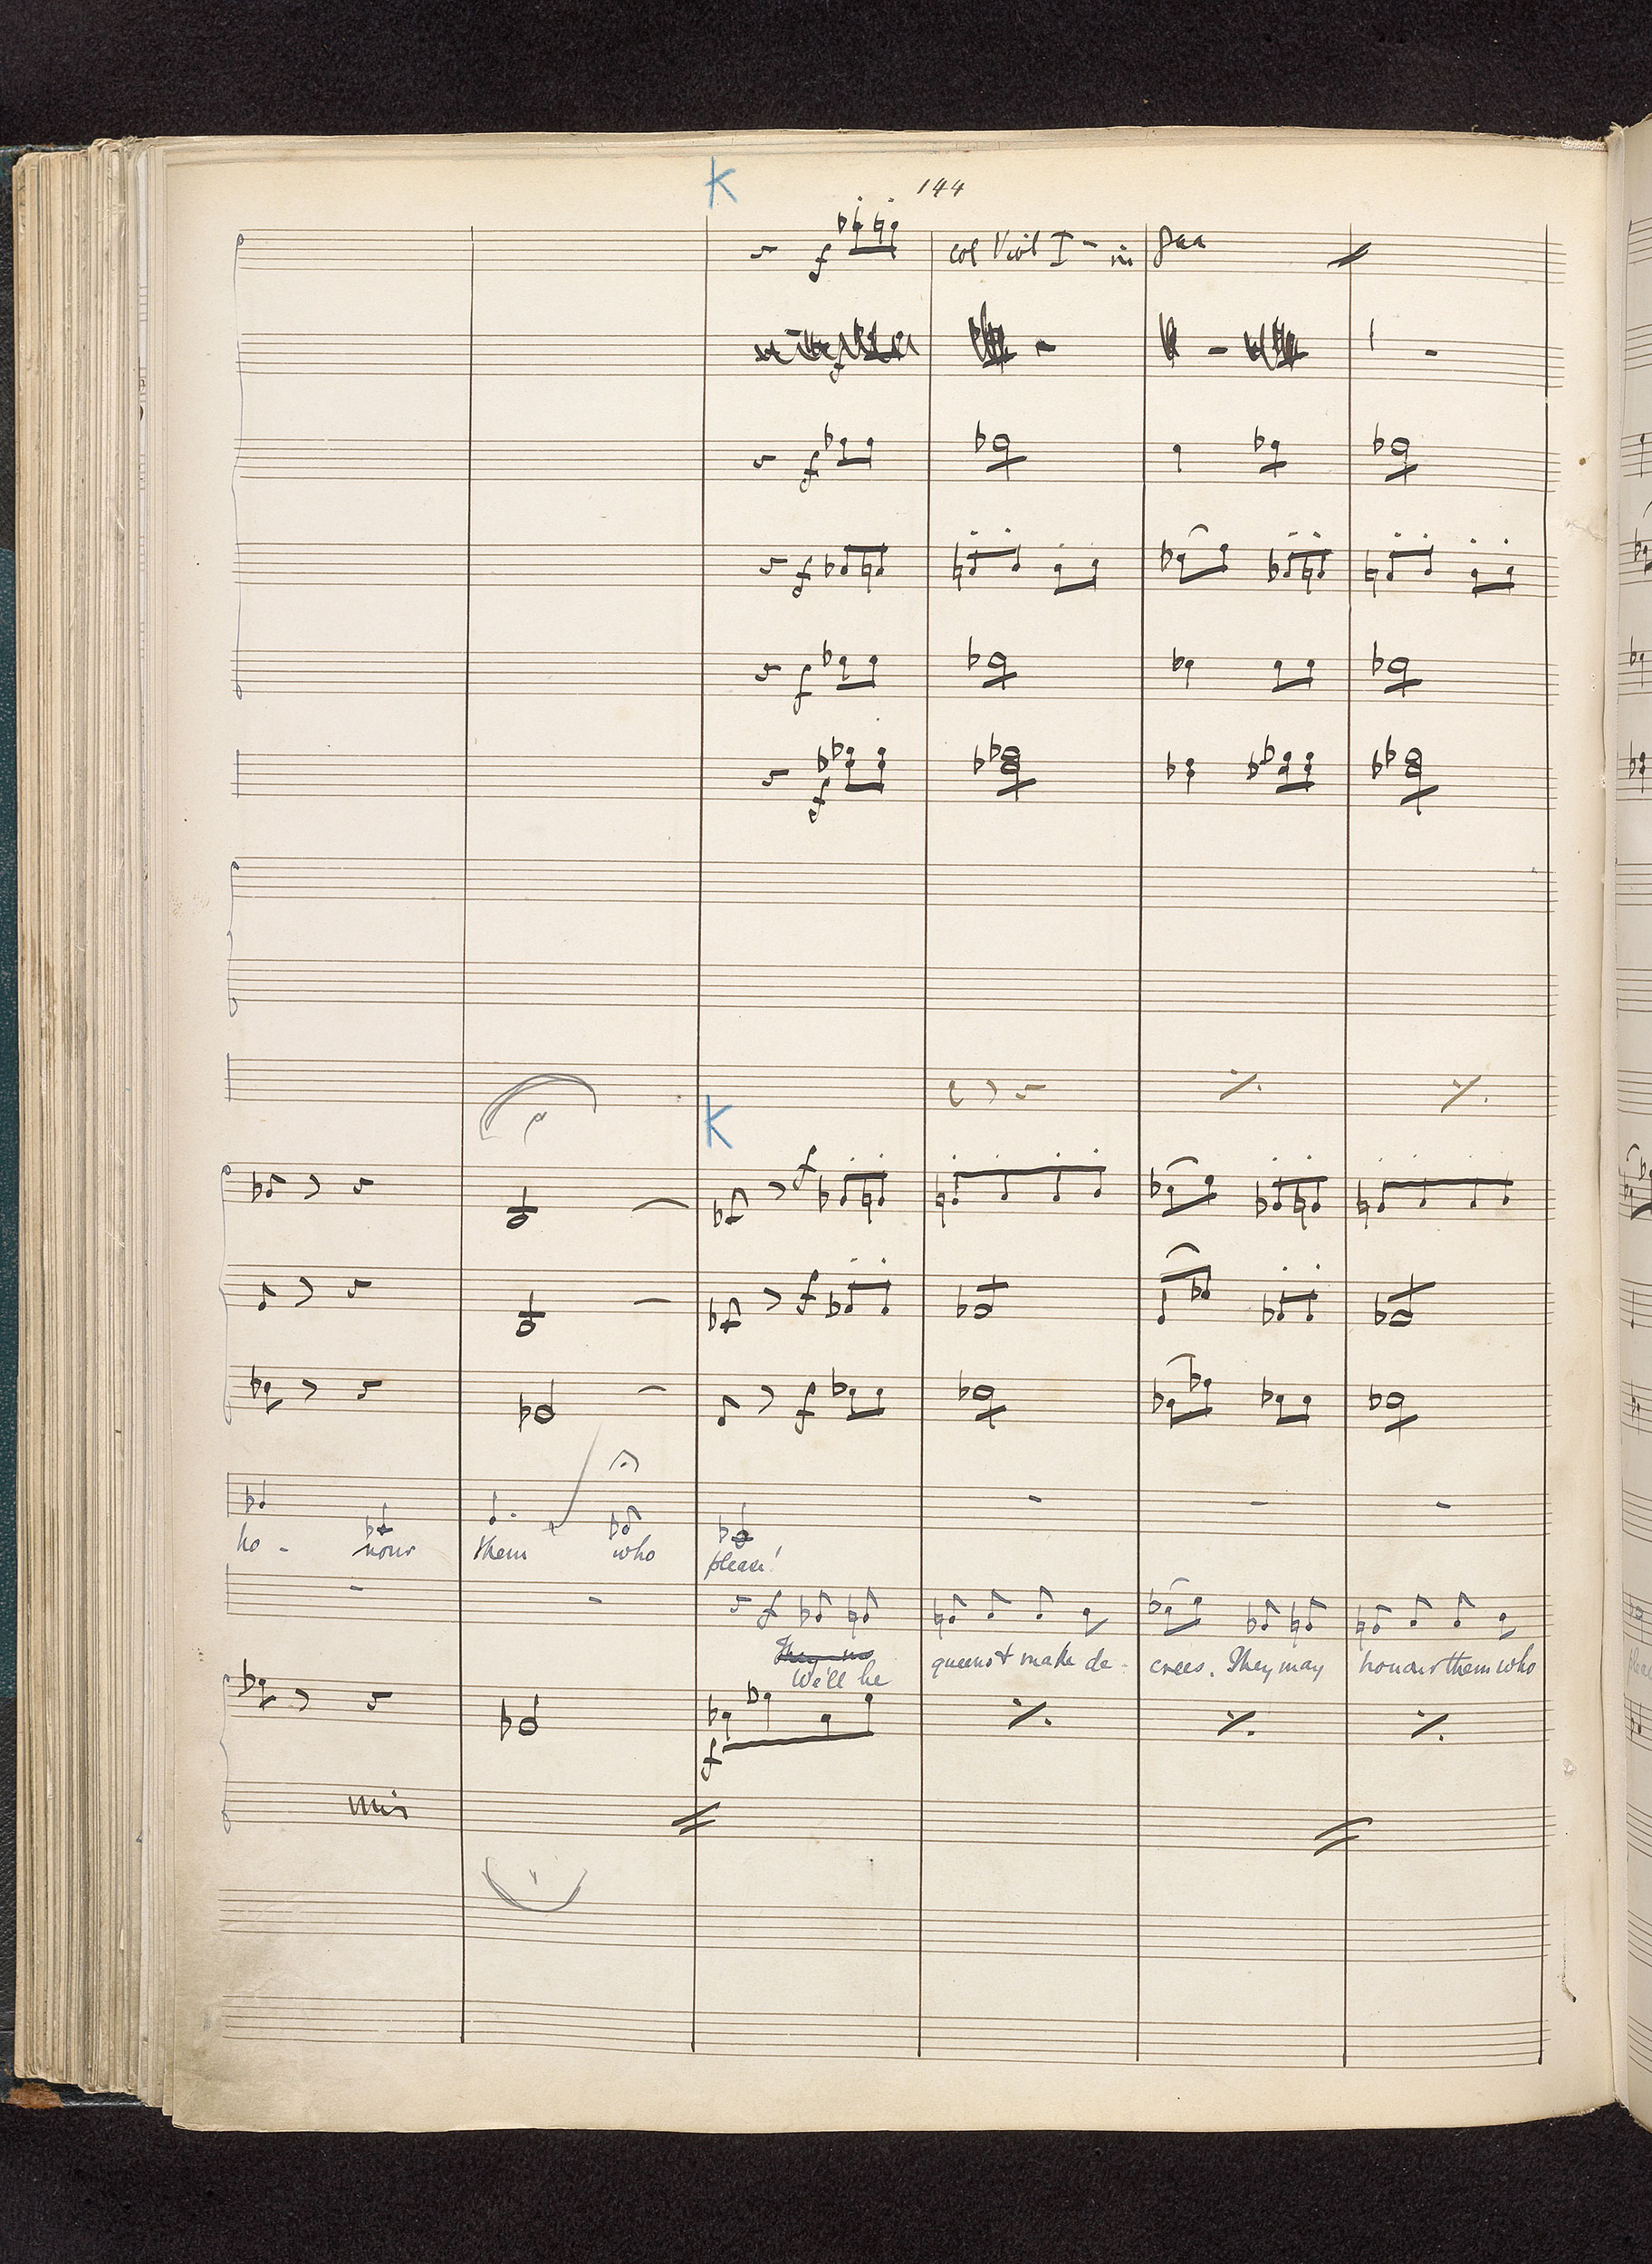 K 144
f col Viol I - in 8va
f
f
f
f
K
f
f
f
ho - nour them who please!
f
They
We'll be queens & make de - crees. They may honour them who
f
unis